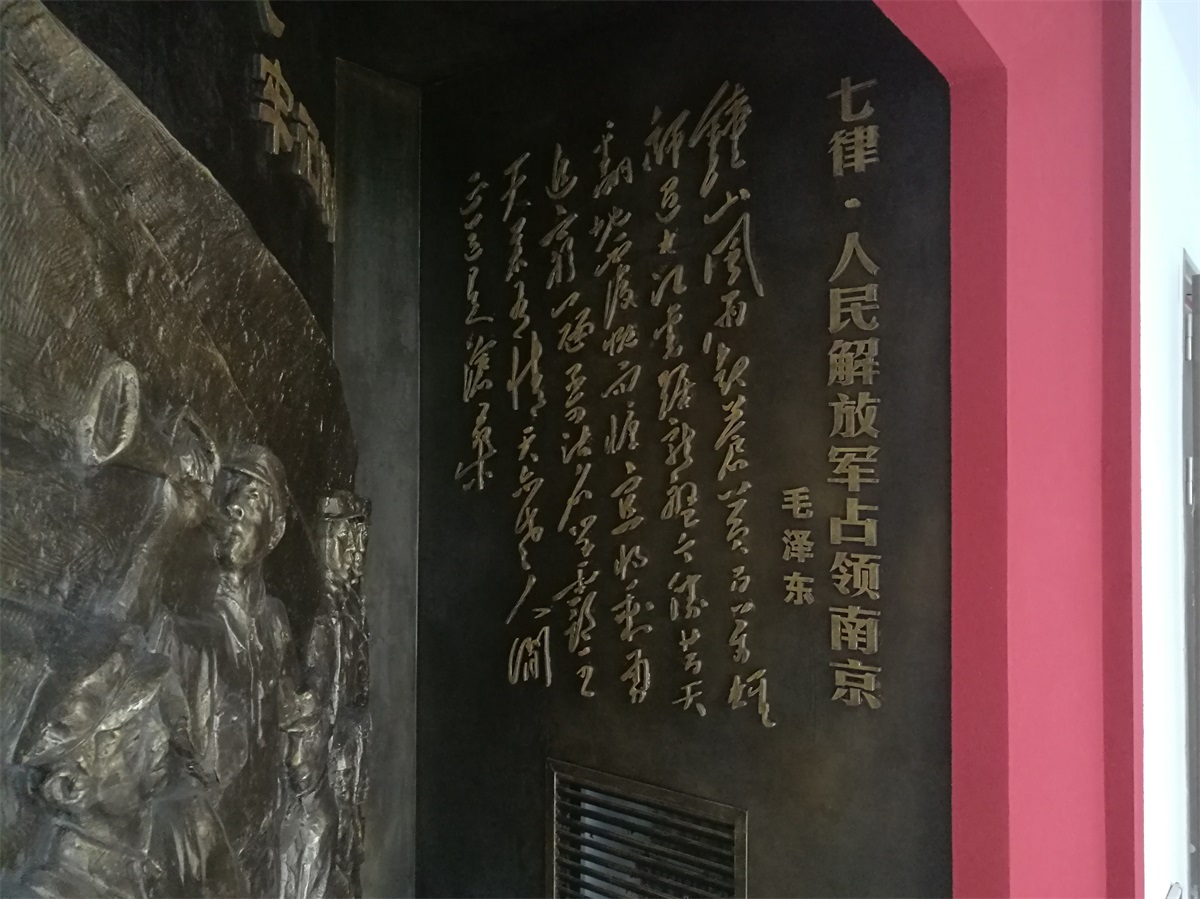 七律·人民解放军占领南京
毛泽东
鐘山風雨起蒼黄百万雄
師過大江虎踞龍盤今勝昔天
翻地覆慨而慷宜將剩勇
追窮寇不可沽名學霸王
天若有情天亦老人間
正道是滄桑